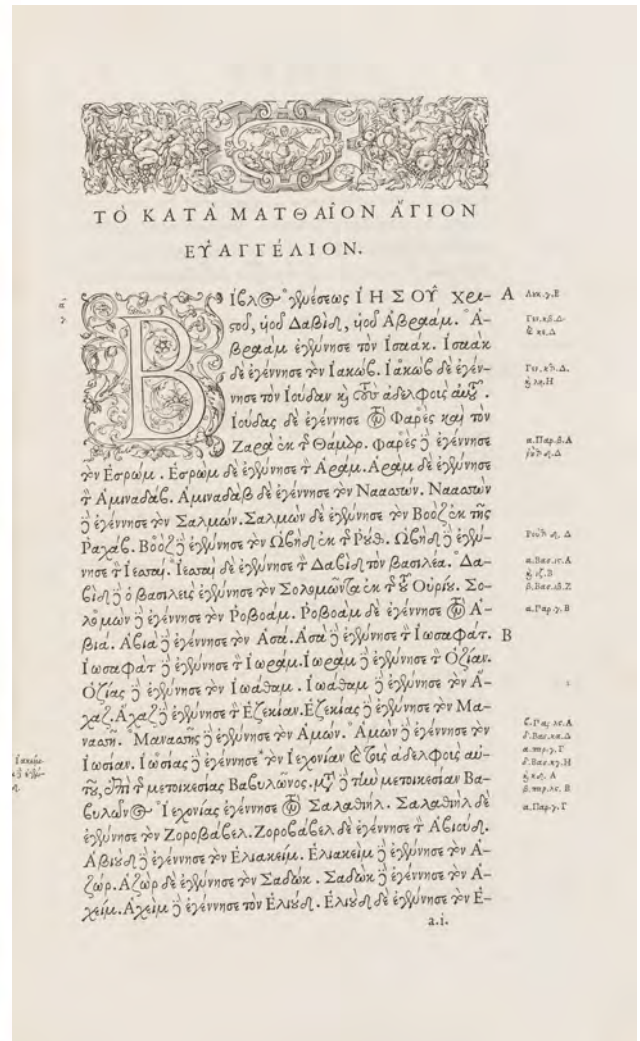 ΤΟ ΚΑΤΑ ΜΑΤΘΑΙΟΝ ἍΓΙΟΝ
ΕΥ̓ΑΓΓΈΛΙΟΝ.
Βίβλος γενέσεως ἸΗΣΟΥ͂ Χρι- Α Λυκ.γ.Ε
στοῦ, υἱοῦ Δαβὶδ, υἱοῦ Ἀβραάμ. Ἀ-
βραὰμ ἐγέννησε τὸν Ἰσαάκ. Ἰσαὰκ
δὲ ἐγέννησε τὸν Ἰακώβ. Ἰακὼβ δὲ ἐγέν-
νησε τὸν Ἰούδαν καὶ τοὺς ἀδελφοὺς αὐτοῦ.
Ἰούδας δὲ ἐγέννησε τὸν Φαρὲς καὶ τὸν
Ζαρὰ ἐκ τῆς Θάμαρ. Φαρὲς δὲ ἐγέννησε α.Παρ.β.Α
τὸν Ἐσρώμ. Ἐσρὼμ δὲ ἐγέννησε τὸν Ἀράμ. Ἀρὰμ δὲ ἐγέννησε
τὸν Ἀμιναδάβ. Ἀμιναδὰβ δὲ ἐγέννησε τὸν Ναασσών. Ναασσὼν
δὲ ἐγέννησε τὸν Σαλμών. Σαλμὼν δὲ ἐγέννησε τὸν Βοὸζ ἐκ τῆς
Ῥαχάβ. Βοὸζ δὲ ἐγέννησε τὸν Ὠβὴδ ἐκ τῆς Ῥούθ. Ὠβὴδ δὲ ἐγέν-
νησε τὸν Ἰεσσαί. Ἰεσσαὶ δὲ ἐγέννησε τὸν Δαβὶδ τὸν βασιλέα. Δα-
βὶδ δὲ ὁ βασιλεὺς ἐγέννησε τὸν Σολομῶντα ἐκ τῆς τοῦ Οὐρίου. Σο-
λομὼν δὲ ἐγέννησε τὸν Ῥοβοάμ. Ῥοβοὰμ δὲ ἐγέννησε τὸν Ἀ- α.Παρ.γ.Β
βιά. Ἀβιὰ δὲ ἐγέννησε τὸν Ἀσά. Ἀσὰ δὲ ἐγέννησε τὸν Ἰωσαφάτ. Β
Ἰωσαφὰτ δὲ ἐγέννησε τὸν Ἰωράμ. Ἰωρὰμ δὲ ἐγέννησε τὸν Ὀζίαν.
Ὀζίας δὲ ἐγέννησε τὸν Ἰωάθαμ. Ἰωάθαμ δὲ ἐγέννησε τὸν Ἄ-
χαζ. Ἄχαζ δὲ ἐγέννησε τὸν Ἐζεκίαν. Ἐζεκίας δὲ ἐγέννησε τὸν Μα-
νασσῆ. Μανασσῆς δὲ ἐγέννησε τὸν Ἀμών. Ἀμὼν δὲ ἐγέννησε τὸν
Ἰωσίαν. Ἰωσίας δὲ ἐγέννησε τὸν Ἰεχονίαν καὶ τοὺς ἀδελφοὺς αὐ-
τοῦ, ἐπὶ τῆς μετοικεσίας Βαβυλῶνος. μετὰ δὲ τὴν μετοικεσίαν Βα-
βυλῶνος Ἰεχονίας ἐγέννησε τὸν Σαλαθιήλ. Σαλαθιὴλ δὲ α.Παρ.γ.Γ
ἐγέννησε τὸν Ζοροβάβελ. Ζοροβάβελ δὲ ἐγέννησε τὸν Ἀβιούδ.
Ἀβιοὺδ δὲ ἐγέννησε τὸν Ἐλιακείμ. Ἐλιακεὶμ δὲ ἐγέννησε τὸν Ἀ-
ζώρ. Ἀζὼρ δὲ ἐγέννησε τὸν Σαδώκ. Σαδὼκ δὲ ἐγέννησε τὸν Ἀ-
χείμ. Ἀχεὶμ δὲ ἐγέννησε τὸν Ἐλιούδ. Ἐλιοὺδ δὲ ἐγέννησε τὸν Ἐ-
a.i.